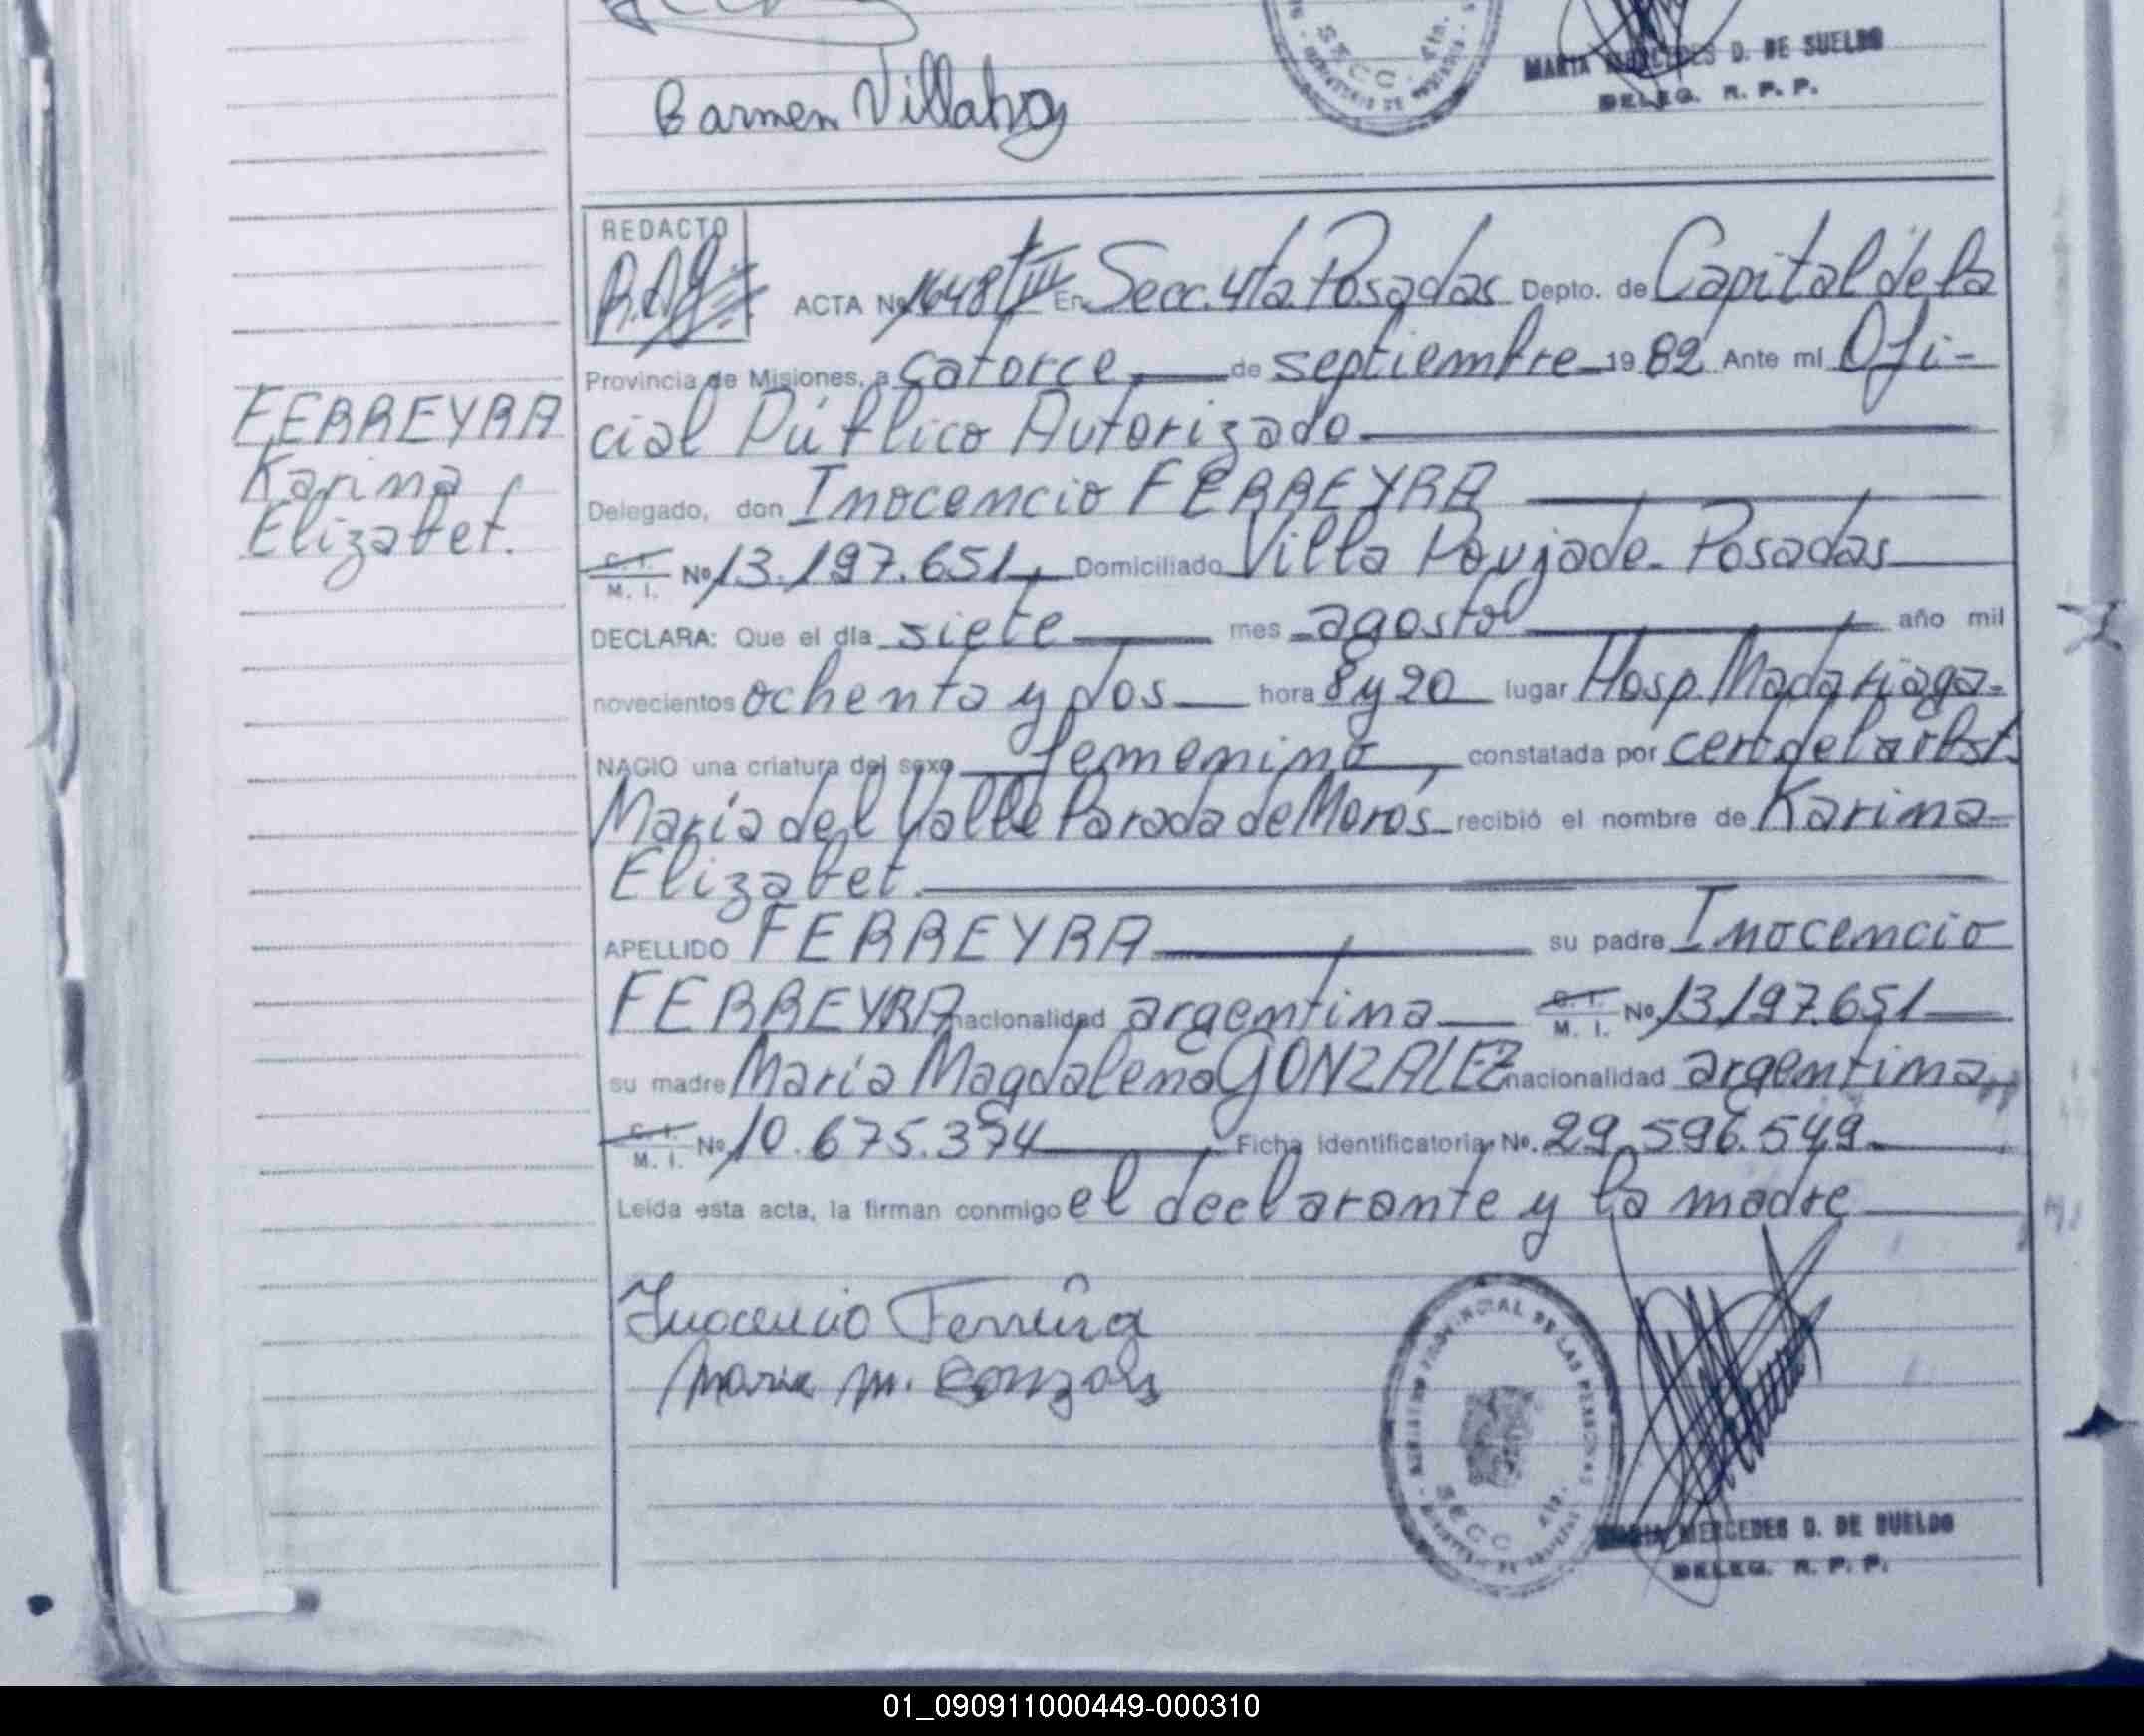 Carmen Villalva
SECC. 4ta.
MARIA MERCEDES D. DE SUELDO
DELEG. R. P. P.
REDACTO
ACTA Nº 1648 tº III En Secc. 4ta. Posadas Depto. de Capital de la
Provincia de Misiones, a catorce de septiembre 19 82 Ante mí Ofi-
cial Público Autorizado
FERREYRA
Karina
Elizabet.
Delegado, don Inocencio FERREYRA
C. I. M. I. Nº 13.197.651, Domiciliado Villa Poujade - Posadas
DECLARA: Que el día siete mes agosto año mil
novecientos ochenta y dos hora 8 y 20 lugar Hosp. Madariaga-
NACIO una criatura del sexo femenino, constatada por cert. de la obst.
María del Valle Parada de Morós recibió el nombre de Karina
Elizabet.
APELLIDO FERREYRA su padre Inocencio
FERREYRA nacionalidad argentina C. I. M. I. Nº 13.197.651
su madre María Magdalena GONZALEZ nacionalidad argentina,
C. I. M. I. Nº 10.675.394 Ficha identificatoria Nº. 29.596.549
Leída esta acta, la firman conmigo el declarante y la madre
Inocencio Ferreira
Maria M. Gonzales
REGISTRO PROVINCIAL DE LAS PERSONAS
SECC. 4ta.
MARIA MERCEDES D. DE SUELDO
DELEG. R. P. P.
01_090911000449-000310